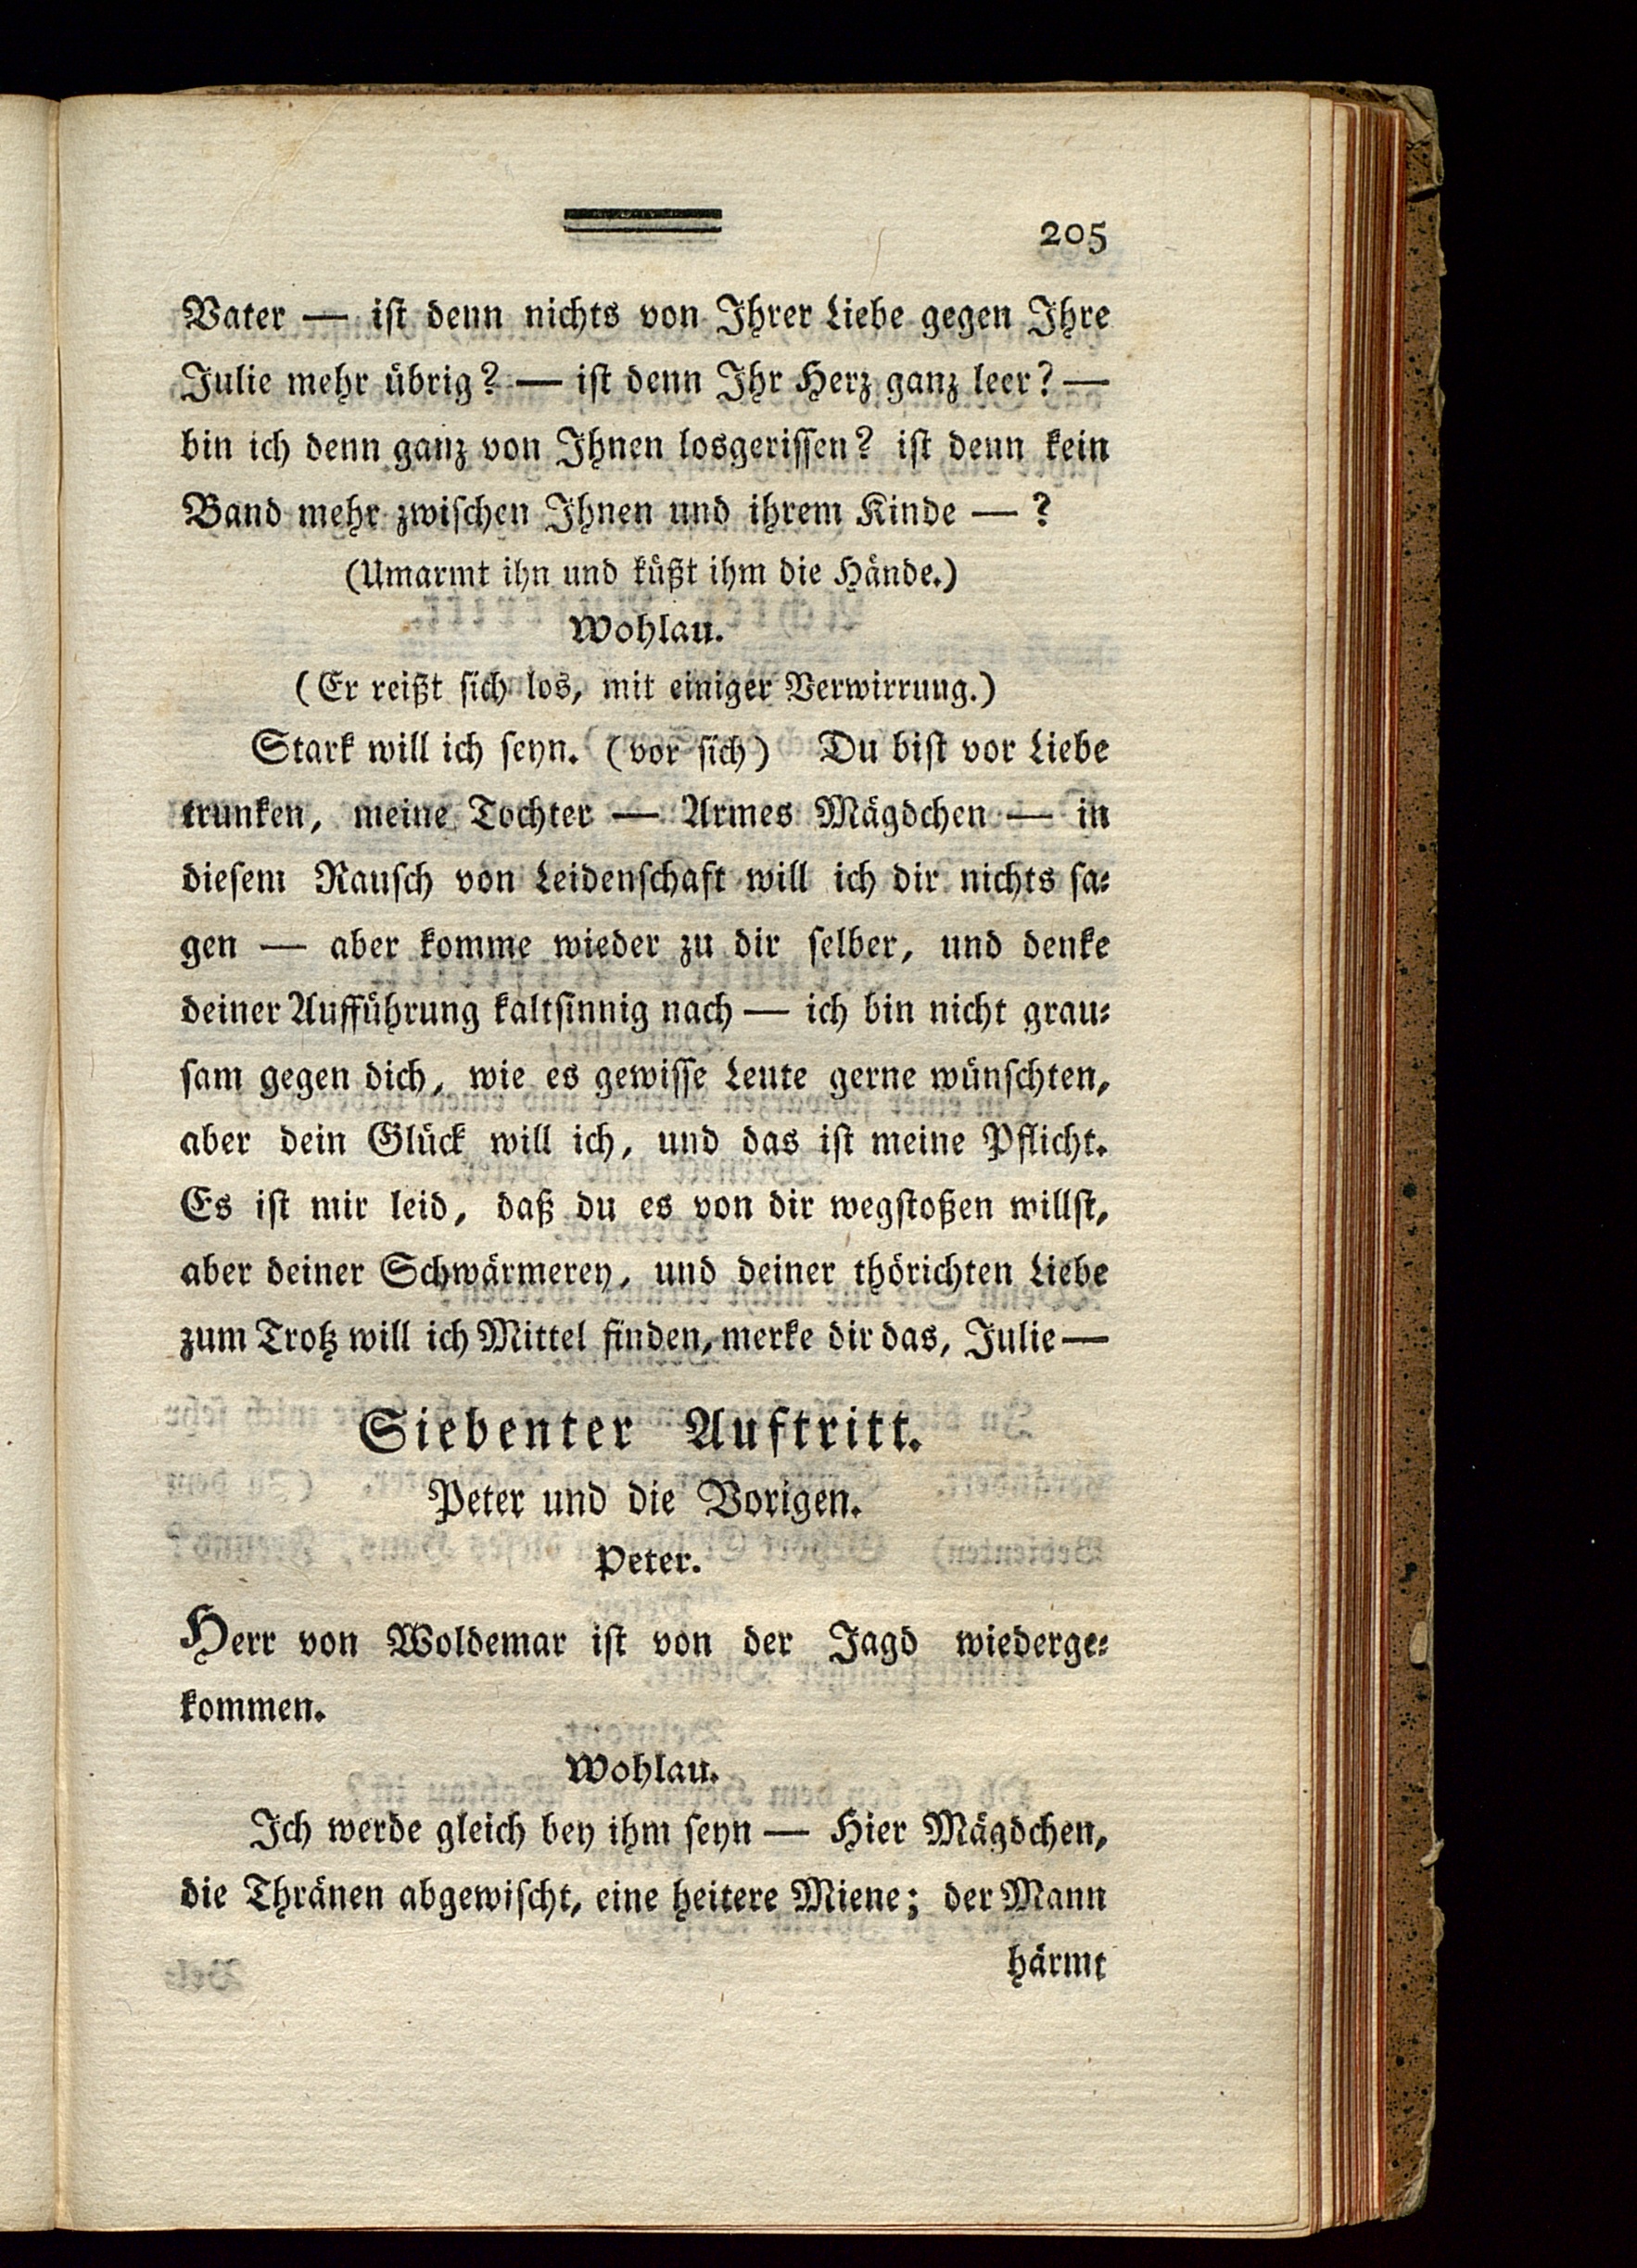 205
Vater — ist denn nichts von Ihrer Liebe gegen Ihre
Julie mehr übrig? — ist denn Ihr Herz ganz leer? —
bin ich denn ganz von Ihnen losgerissen? ist denn kein
Band mehr zwischen Ihnen und ihrem Kinde — ?
(Umarmt ihn und küßt ihm die Hände.)
Wohlau.
(Er reißt sich los, mit einiger Verwirrung.)
Stark will ich seyn. (vor sich) Du bist vor Liebe
trunken, meine Tochter — Armes Mägdchen — in
diesem Rausch von Leidenschaft will ich dir nichts sa-
gen — aber komme wieder zu dir selber, und denke
deiner Aufführung kaltsinnig nach — ich bin nicht grau-
sam gegen dich, wie es gewisse Leute gerne wünschten,
aber dein Glück will ich, und das ist meine Pflicht.
Es ist mir leid, daß du es von dir wegstoßen willst,
aber deiner Schwärmerey, und deiner thörichten Liebe
zum Trotz will ich Mittel finden, merke dir das, Julie —
Siebenter Auftritt.
Peter und die Vorigen.
Peter.
Herr von Woldemar ist von der Jagd wiederge-
kommen.
Wohlau.
Ich werde gleich bey ihm seyn — Hier Mägdchen,
die Thränen abgewischt, eine heitere Miene; der Mann
härmt